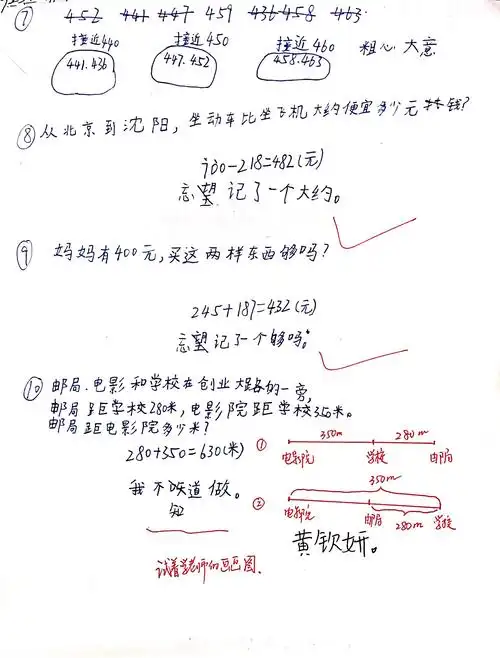 ⑦ 452 441 447 459 436 458 463.
接近440 接近450 接近460 粗心大意
441.436 447.452 458.463
⑧从北京到沈阳，坐动车比坐飞机大约便宜多少元钱？
700-218=482(元)
忘望记了一个大约。
⑨ 妈妈有400元，买这两样东西够吗？
245+187=432(元)
忘望记了一个够吗。
⑩邮局.电影和学校在创业大路的一旁，
邮局距学校280米，电影院距学校350米。
邮局距电影院多少米？
280+350=630(米)
① 350m 280m
电影院 学校 邮局
我不知道做。
知
② 350m
电影院 邮局 280m 学校
黄钦妍。
试着学老师的画画图.